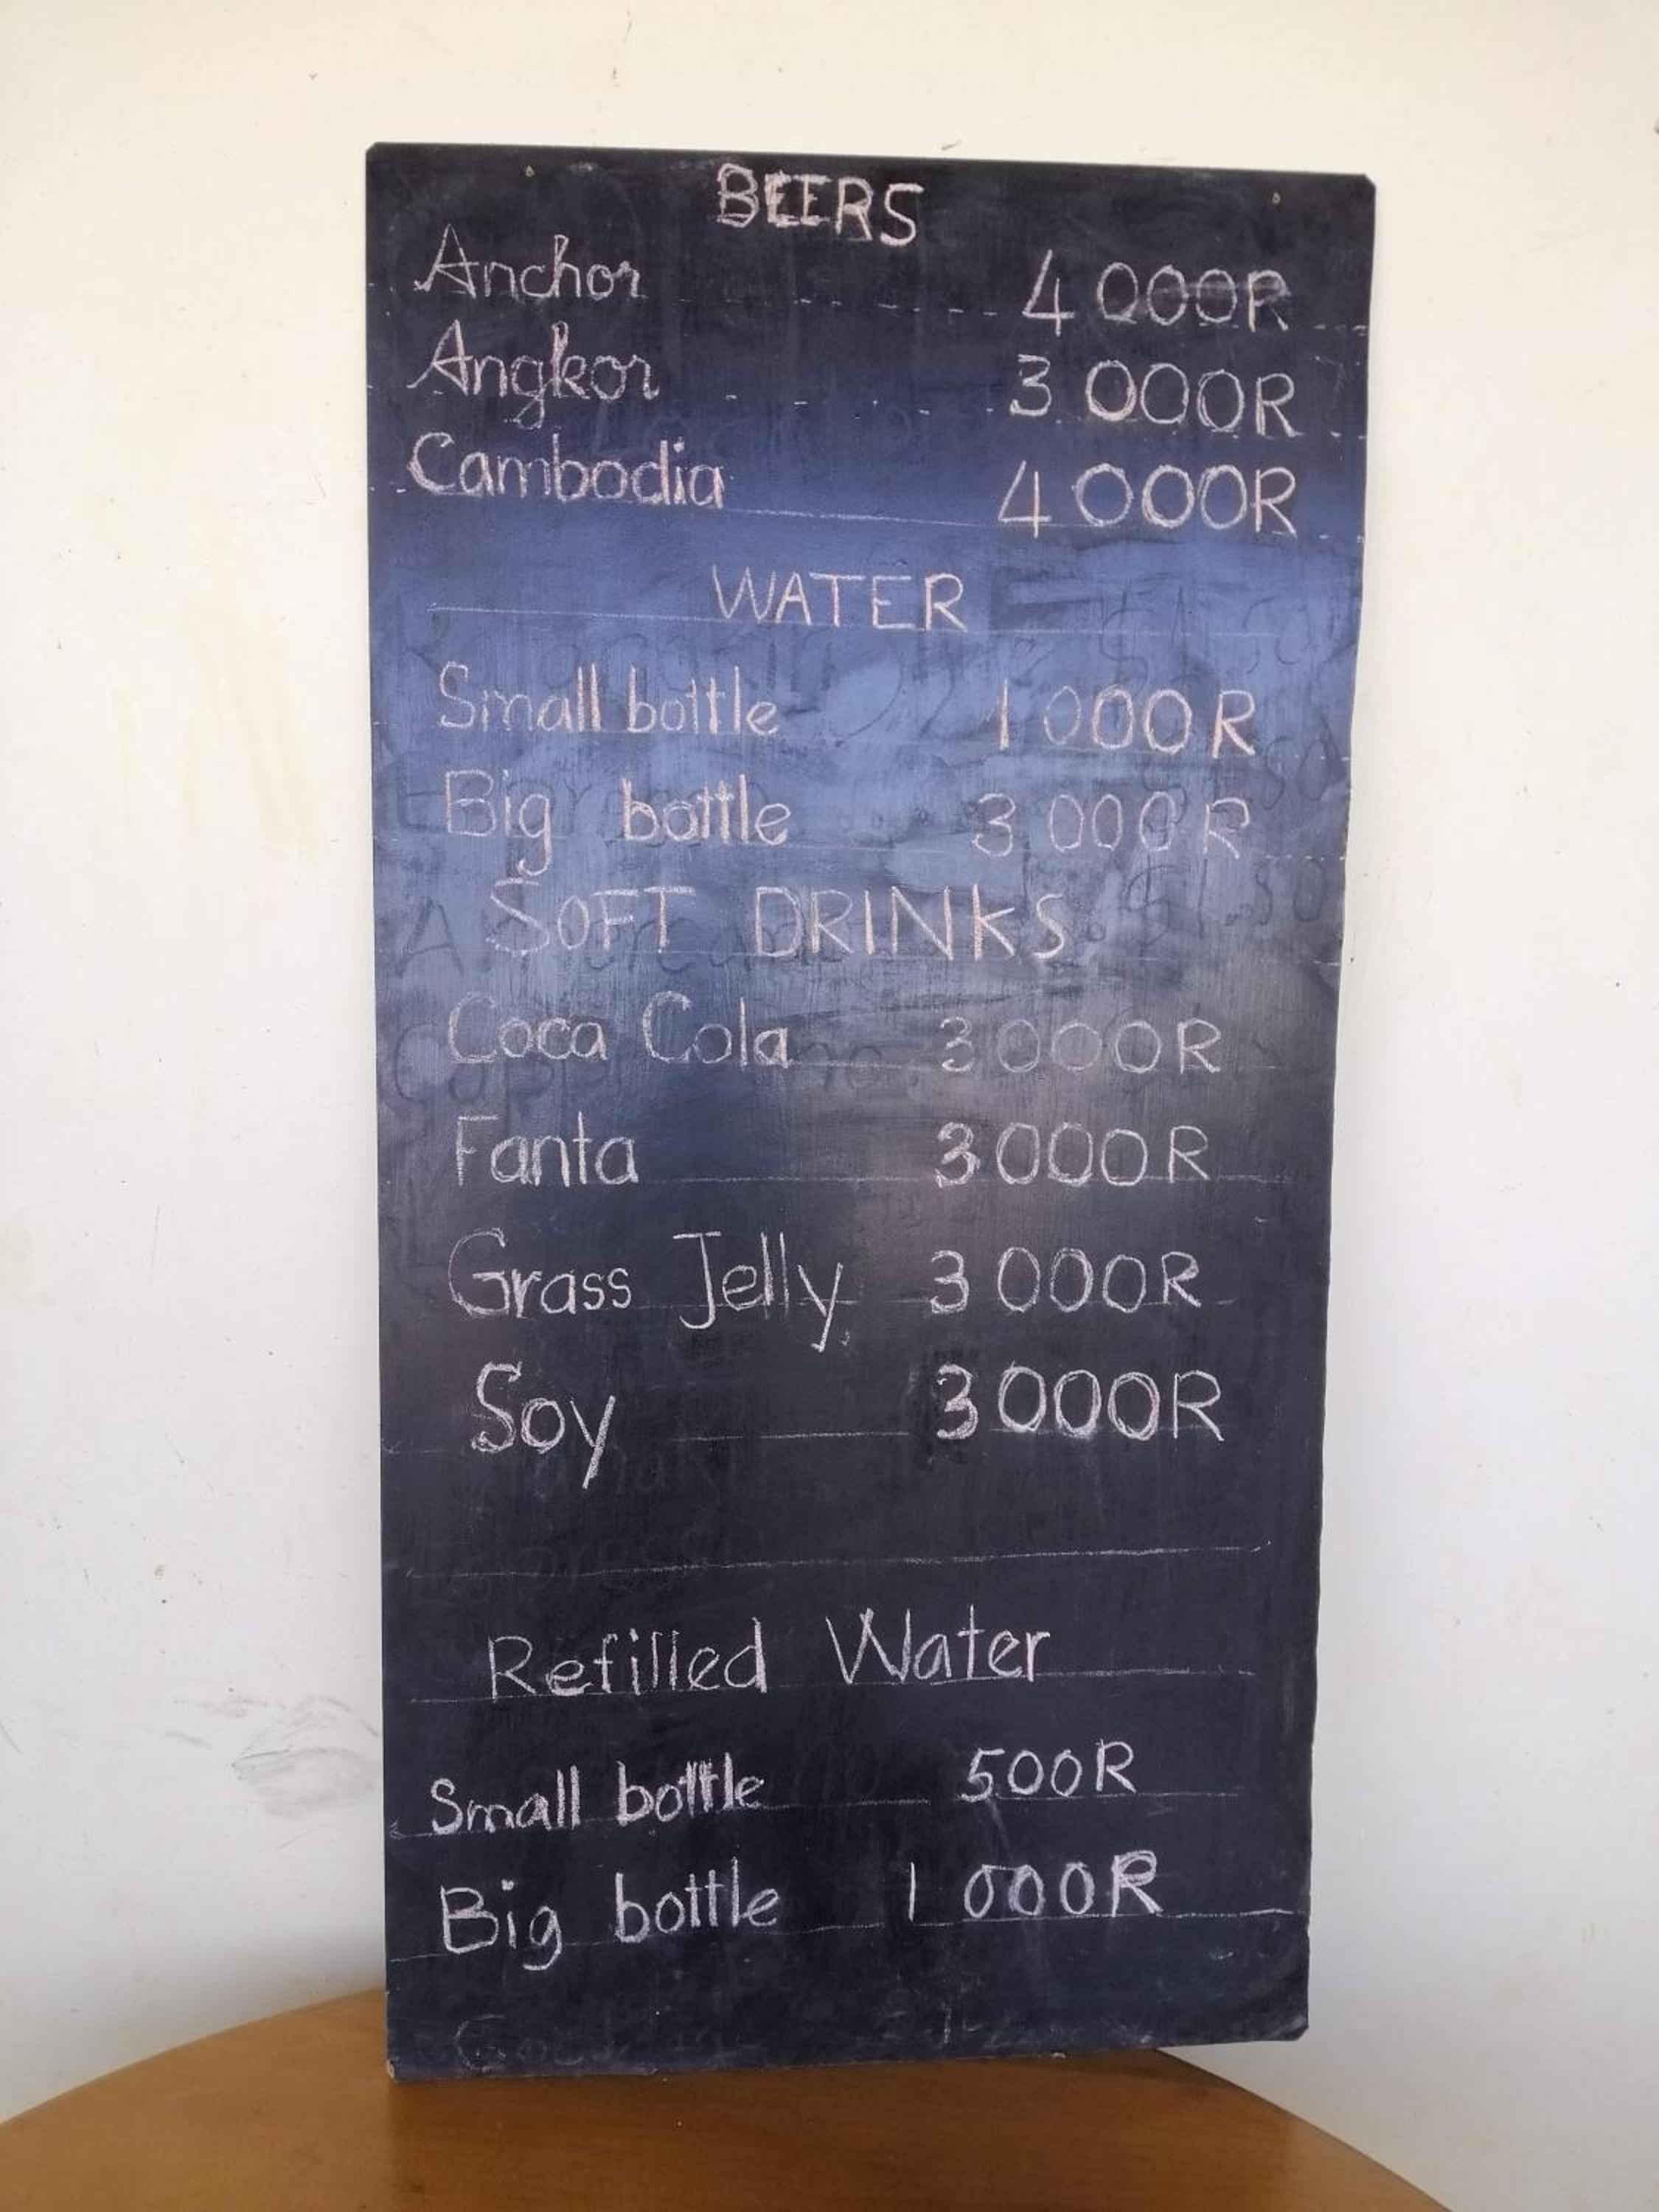 BEERS
Anchor 4 000R
Angkor 3 000R
Cambodia 4 000R
WATER
Small bottle 1 000 R
Big bottle 3 000 R
SOFT DRINKS
Coca Cola 3 000R
Fanta 3 000R
Grass Jelly 3 000R
Soy 3 000R
Refilled Water
Small bottle 500R
Big bottle 1 000R